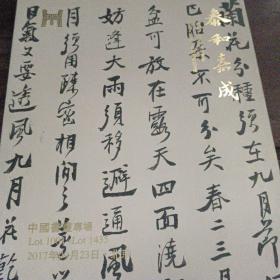 泰和嘉成
菊花分種須在九月節
已胎叢不可分矣春二三月
盆可放在露天四面澆
妨逢大雨須移避通風
月須用疎密相間之
日氣又要透風九月花乾
中國書畫專場
Lot 1435
2017年